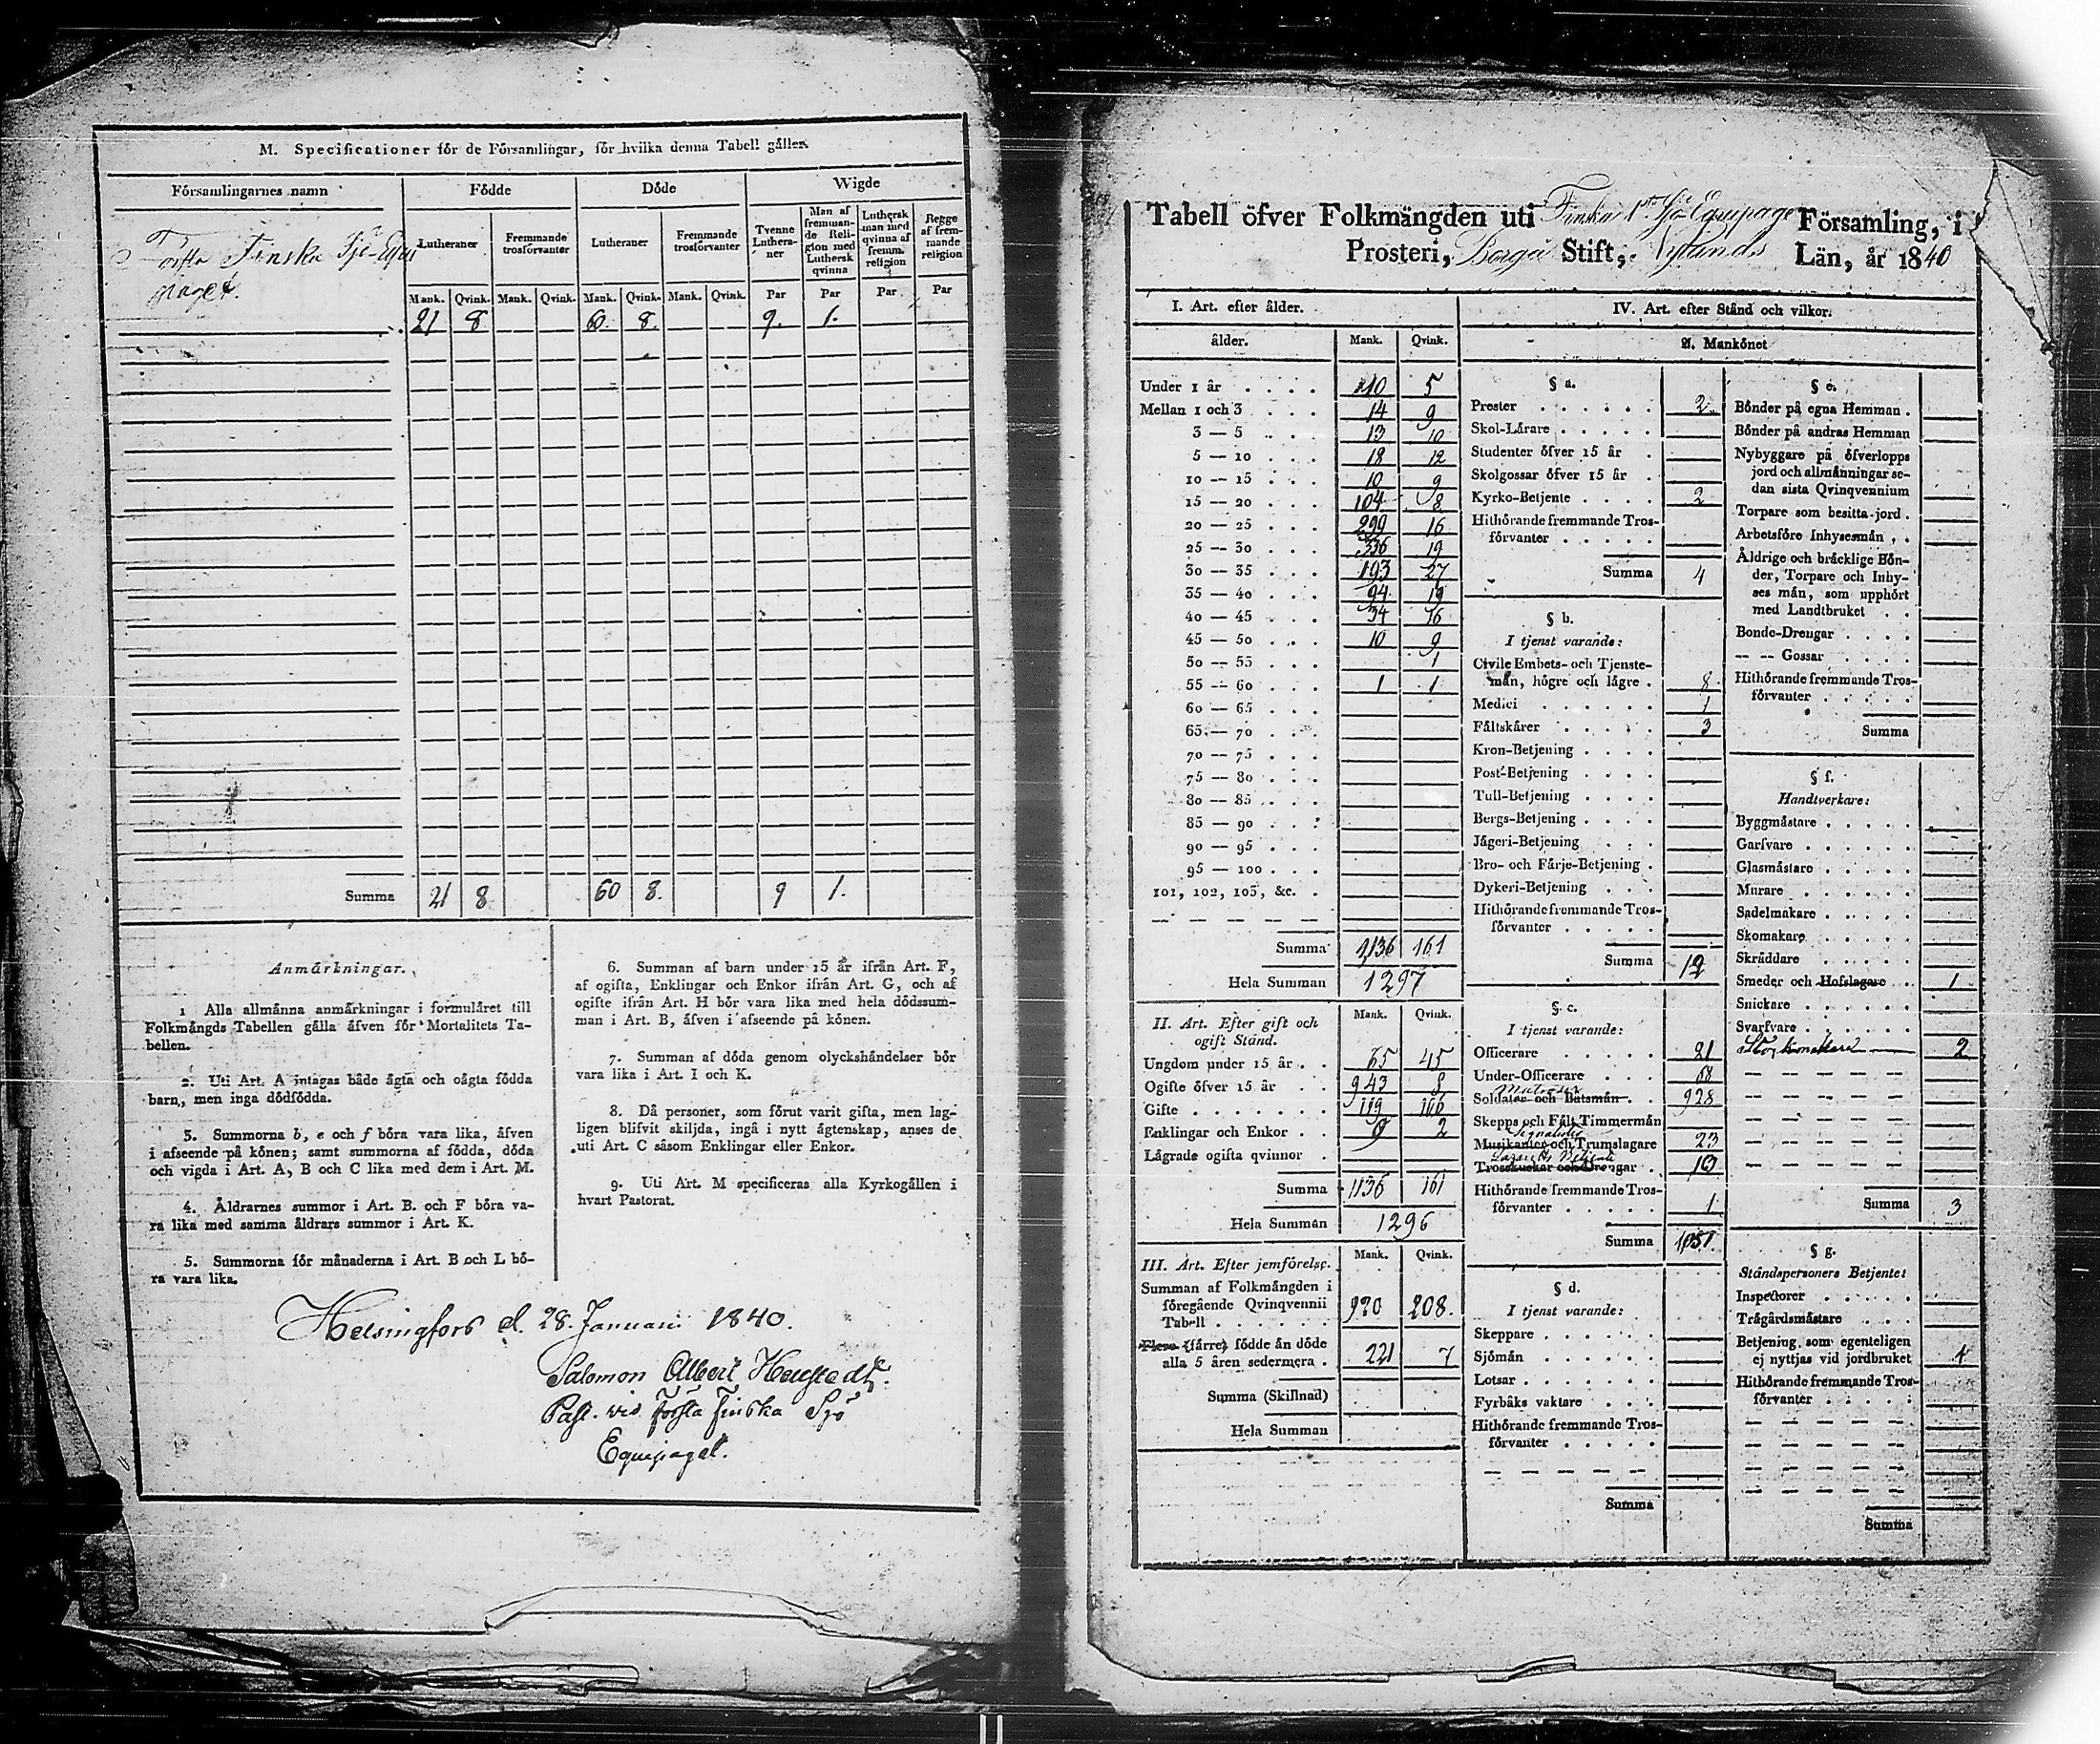 M. Specificationer för de Församlingar, för hvilka denna Tabell gäller.
Församlingarnes namn Födde Döde Wigde
Lutheraner Fremmande trosförvanter Lutheraner Fremmande trosförvanter Tvenne Lutheraner Man af fremmande Religion med Luthersk qvinna Luthersk man med qvinna af fremm. religion Begge af fremmande religion
Mank. Qvink. Mank. Qvink. Mank. Qvink. Mank. Qvink. Par Par Par Par
Första Finska Sjö-Equi
paget. 21 8 60. 8. 9. 1.
Summa 21 8 60 8. 9 1.
Anmärkningar.
1 Alla allmänna anmärkningar i formuläret till
Folkmängds Tabellen gälla äfven för Mortalitets Ta-
bellen.
2. Uti Art. A intagas både ägta och oägta födda
barn, men inga dödfödda.
3. Summorna b, e och f böra vara lika, äfven
i afseende på könen; samt summorna af födda, döda
och vigda i Art. A, B och C lika med dem i Art. M.
4. Åldrarnes summor i Art. B. och F böra va-
ra lika med samma åldrars summor i Art. K.
5. Summorna för månaderna i Art. B och L bö-
ra vara lika.
6. Summan af barn under 15 år ifrån Art. F,
af ogifta, Enklingar och Enkor ifrån Art. G, och af
ogifte ifrån Art. H bör vara lika med hela dödssum-
man i Art. B, äfven i afseende på könen.
7. Summan af döda genom olyckshändelser bör
vara lika i Art. I och K.
8. Då personer, som förut varit gifta, men lag-
ligen blifvit skiljda, ingå i nytt ägtenskap, anses de
uti Art. C såsom Enklingar eller Enkor.
9. Uti Art. M specificeras alla Kyrkogällen i
hvart Pastorat.
Helsingfors d. 28. Januari 1840.
Salomon Albert
Past. vid Första Finska Sjö
Equipaget.
Tabell öfver Folkmängden uti Finska 1sta Sjö Equipage Församling, i
Prosteri, Borgå Stift, Nylands Län, år 1840
I. Art. efter ålder.
ålder. Mank. Qvink.
Under 1 år 10 5
Mellan 1 och 3 14 9
3 — 5 13 10
5 — 10 18 12
10 — 15 10 9
15 — 20 104 8
20 — 25 299 16
25 — 30 336 19
30 — 35 193 27
35 — 40 94 19
40 — 45 34 16
45 — 50 10 9
50 — 55 1
55 — 60 1 1
60 — 65
65 — 70
70 — 75
75 — 80
80 — 85
85 — 90
90 — 95
95 — 100
101, 102, 103, &c.
Summa 1,136 161
Hela Summan 1297
II. Art. Efter gift och
ogift Stånd. Mank. Qvink.
Ungdom under 15 år 65 45
Ogifte öfver 15 år 943 8
Gifte 119 106
Enklingar och Enkor 9 2
Lägrade ogifta qvinnor
Summa 1136 161
Hela Summan 1296
III. Art. Efter jemförelse. Mank. Qvink.
Summan af Folkmängden i
föregående Qvinqvennii
Tabell 920 208.
Flere (färre) födde än döde
alla 5 åren sedermera 221 7
Summa (Skillnad)
Hela Summan
IV. Art. efter Stånd och vilkor.
A. Mankönet
§ a.
Prester 2
Skol-Lärare
Studenter öfver 15 år
Skolgossar öfver 15 år
Kyrko-Betjente 2
Hithörande fremmande Tros-
förvanter
Summa 4
§ b.
I tjenst varande:
Civile Embets- och Tjenste-
män, högre och lägre 8
Medici 1
Fältskärer 3
Kron-Betjening
Post-Betjening
Tull-Betjening
Bergs-Betjening
Jägeri-Betjening
Bro- och Färje-Betjening
Dykeri-Betjening
Hithörande fremmande Tros-
förvanter
Summa 12
§ c.
I tjenst varande:
Officerare 21
Under-Officerare 68
Matroser
Soldater och Båtsmän 928
Skepps och Fält Timmermän
Signalister
Musikanter och Trumslagare 23
Lazaretts Betjente
Trosskuskar och Drengar 10
Hithörande fremmande Tros-
förvanter 1
Summa 1051.
§ d.
I tjenst varande:
Skeppare
Sjömän
Lotsar
Fyrbåks vaktare
Hithörande fremmande Tros-
förvanter
Summa
§ e.
Bönder på egna Hemman
Bönder på andras Hemman
Nybyggare på öfverlopps
jord och allmänningar se-
dan sista Qvinqvennium
Torpare som besitta jord
Arbetsföre Inhysesmän
Åldrige och bräcklige Bön-
der, Torpare och Inhy-
ses män, som upphört
med Landtbruket
Bonde-Drengar
— — Gossar
Hithörande fremmande Tros-
förvanter
Summa
§ f.
Handtverkare:
Byggmästare
Garfvare
Glasmästare
Murare
Sadelmakare
Skomakare
Skräddare
Smeder och Hofslagare 1
Snickare
Svarfvare
2
Summa 3
§ g.
Ståndspersoners Betjente:
Inspektorer
Trägårdsmästare
Betjening, som egenteligen
ej nyttjas vid jordbruket 4
Hithörande fremmande Tros-
förvanter
Summa